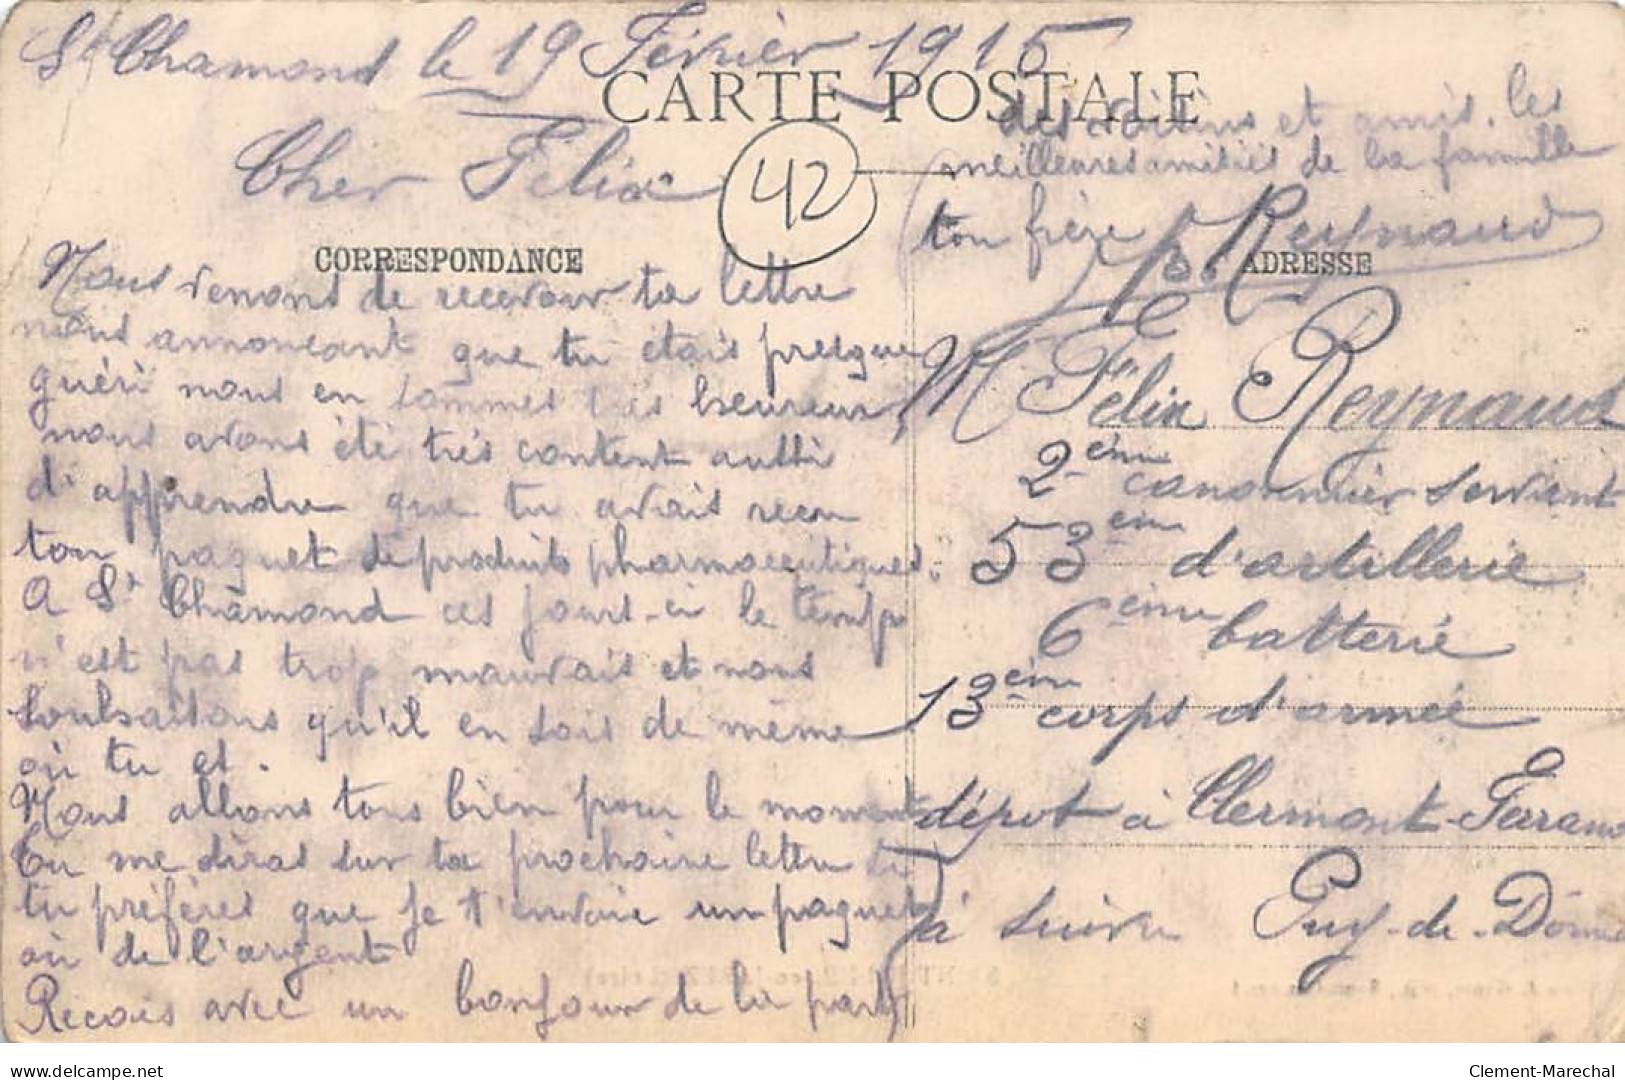 St Chamond le 19 Février 1915
CARTE POSTALE
Cher Félix
42
CORRESPONDANCE
Nous venons de recevoir ta lettre
nous annoncant que tu étais presque
guéri nous en sommes très heureux
nous avons été trés content aussi
d'apprendre que tu avais recu
ton paquet de produits pharmaceutiques.
A St Chamond ces jours-ci le temps
n'est pas trop mauvais et nous
souhaitons qu'il en sois de même
où tu est.
Nous allons tous bien pour le moment
Tu me diras sur ta prochaine lettre si
tu préféres que je t'envoie un paquet
où de l'argent
Recois avec un bonjour de la part
des voisins et amis. les
meilleures amitiés de la famille
ton frère Reynaud
ADRESSE
M Félix Reynaud
2ème canonnier servant
53ème d'artillerie
6ème batterie
13ème corps d'armée
dépot à Clermont-Ferrand
à suivre Puy-de-Dôme
delcampe.net
Clement-Marechal